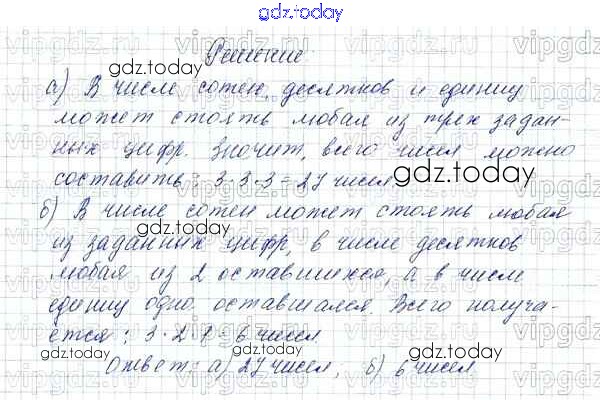 gdz.today
Решение
а) В числе сотен, десятков и единиц
может стоять любая из трех задан-
ных цифр. Значит, всего чисел можно
составить: 3·3·3=27 чисел
б) В числе сотен может стоять любая
из заданных цифр, в числе десятков
любая из 2 оставшихся, а в числе
единиц одна оставшаяся. Всего получа-
ется: 3·2·1=6 чисел
Ответ: а) 27 чисел, б) 6 чисел